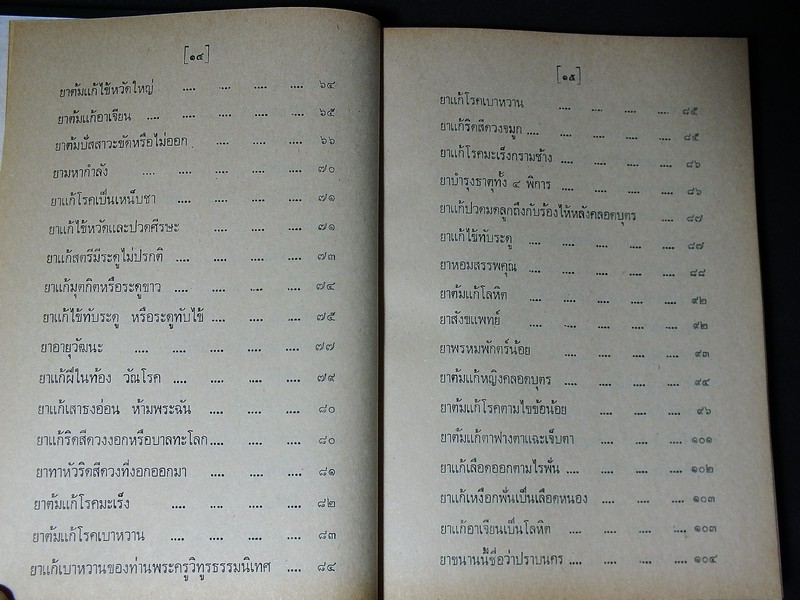 [๑๔]
ยาต้มแก้ไข้หวัดใหญ่ .... .... .... .... ๖๔
ยาต้มแก้อาเจียน .... .... .... .... ๖๕
ยาต้มปัสสาวะขัดหรือไม่ออก .... .... .... ๖๖
ยามหากำลัง .... .... .... .... ๗๐
ยาแก้โรคเป็นเหน็บชา .... .... .... ๗๑
ยาแก้ไข้หวัดและปวดศีรษะ .... .... .... ๗๑
ยาแก้สตรีมีระดูไม่ปรกติ .... .... .... .... ๗๓
ยาแก้มุตกิตหรือระดูขาว .... .... .... .... ๗๔
ยาแก้ไข้ทับระดู หรือระดูทับไข้ .... .... .... ๗๕
ยาอายุวัฒนะ .... .... .... .... ๗๗
ยาแก้ฝีในท้อง วัณโรค .... .... .... .... ๗๙
ยาแก้เสาธงอ่อน ห้ามพระฉัน .... .... .... ๘๐
ยาแก้ริดสีดวงงอกหรือบาลทะโลก.... .... .... ๘๐
ยาทาหัวริดสีดวงที่งอกออกมา .... .... .... ๘๑
ยาต้มแก้โรคมะเร็ง .... .... .... .... ๘๒
ยาต้มแก้โรคเบาหวาน .... .... .... .... ๘๓
ยาแก้เบาหวานของท่านพระครูวิทูรธรรมนิเทศ .... ๘๔
[๑๕]
ยาแก้โรคเบาหวาน .... .... .... .... ๘๕
ยาแก้ริดสีดวงจมูก .... .... .... .... ๘๕
ยาแก้โรคมะเร็งกรามช้าง .... .... .... .... ๘๖
ยาบำรุงธาตุทั้ง ๔ พิการ .... .... .... .... ๘๖
ยาแก้ปวดมดลูกถึงกับร้องไห้หลังคลอดบุตร .... ๘๗
ยาแก้ไข้ทับระดู .... .... .... .... .... ๘๗
ยาหอมสรรพคุณ .... .... .... .... .... ๘๘
ยาต้มแก้โลหิต .... .... .... .... .... ๙๒
ยาสังขแพทย์ .... .... .... .... .... ๙๒
ยาพรหมพักตร์น้อย .... .... .... .... ๙๓
ยาต้มแก้หญิงคลอดบุตร .... .... .... .... ๙๕
ยาต้มแก้โรคตามไขข้อน้อย .... .... .... ๙๖
ยาต้มแก้ตาฟางตาแฉะเจ็บตา .... .... .... ๑๐๑
ยาแก้เลือดออกตามไรฟัน .... .... .... .... ๑๐๒
ยาแก้เหงือกพันเป็นเลือดหนอง .... .... .... ๑๐๓
ยาแก้อาเจียนเป็นโลหิต .... .... .... .... ๑๐๓
ยาขนานนี้ชื่อว่าปราบนคร .... .... .... .... ๑๐๔